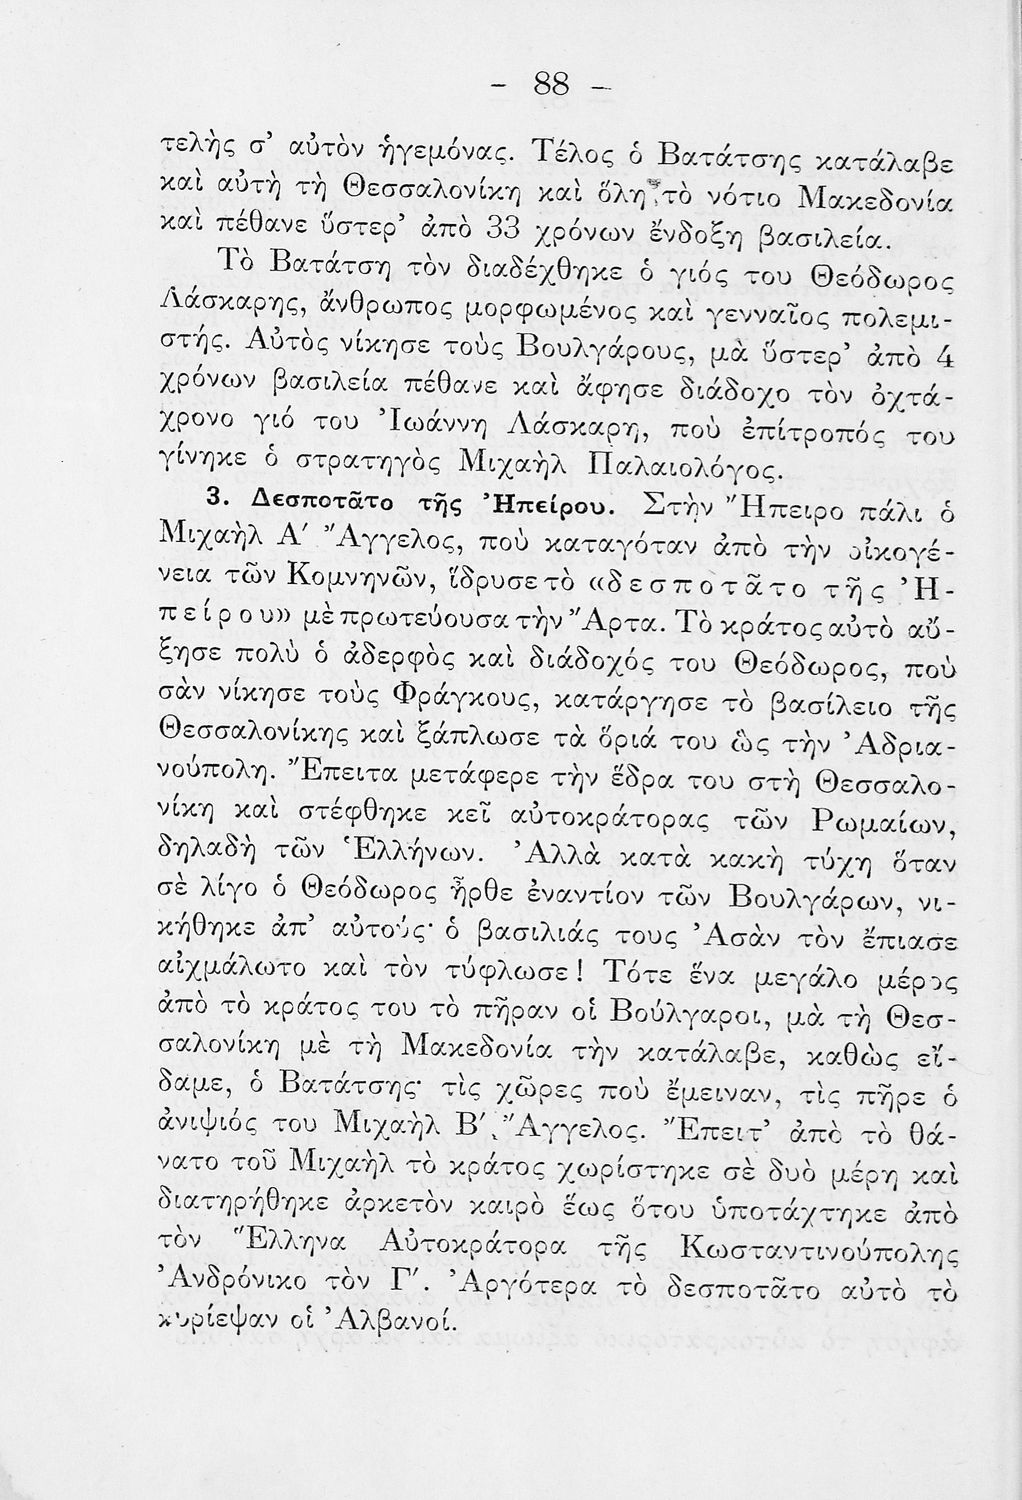 - 88 -
τελὴς σ' αὐτὸν ἡγεμόνας. Τέλος ὁ Βατάτσης κατάλαβε
καὶ αὐτὴ τὴ Θεσσαλονίκη καὶ ὅλη τὸ νότιο Μακεδονία
καὶ πέθανε ὕστερ' ἀπὸ 33 χρόνων ἔνδοξη βασιλεία.
Τὸ Βατάτση τὸν διαδέχθηκε ὁ γιός του Θεόδωρος
Λάσκαρης, ἄνθρωπος μορφωμένος καὶ γενναῖος πολεμι-
στής. Αὐτὸς νίκησε τοὺς Βουλγάρους, μὰ ὕστερ' ἀπὸ 4
χρόνων βασιλεία πέθανε καὶ ἄφησε διάδοχο τὸν ὀχτά-
χρονο γιό του Ἰωάννη Λάσκαρη, ποὺ ἐπίτροπός του
γίνηκε ὁ στρατηγὸς Μιχαὴλ Παλαιολόγος.
3. Δεσποτᾶτο τῆς Ἠπείρου. Στὴν Ἤπειρο πάλι ὁ
Μιχαὴλ Α' Ἄγγελος, ποὺ καταγόταν ἀπὸ τὴν οἰκογέ-
νεια τῶν Κομνηνῶν, ἵδρυσε τὸ «δεσποτᾶτο τῆς Ἠ-
πείρου» μὲ πρωτεύουσα τὴν Ἄρτα. Τὸ κράτος αὐτὸ αὔ-
ξησε πολὺ ὁ ἀδερφὸς καὶ διάδοχός του Θεόδωρος, ποὺ
σὰν νίκησε τοὺς Φράγκους, κατάργησε τὸ βασίλειο τῆς
Θεσσαλονίκης καὶ ξάπλωσε τὰ ὅριά του ὣς τὴν Ἀδρια-
νούπολη. Ἔπειτα μετάφερε τὴν ἕδρα του στὴ Θεσσαλο-
νίκη καὶ στέφθηκε κεῖ αὐτοκράτορας τῶν Ρωμαίων,
δηλαδὴ τῶν Ἑλλήνων. Ἀλλὰ κατὰ κακὴ τύχη ὅταν
σὲ λίγο ὁ Θεόδωρος ἦρθε ἐναντίον τῶν Βουλγάρων, νι-
κήθηκε ἀπ' αὐτούς· ὁ βασιλιάς τους Ἀσὰν τὸν ἔπιασε
αἰχμάλωτο καὶ τὸν τύφλωσε! Τότε ἕνα μεγάλο μέρος
ἀπὸ τὸ κράτος του τὸ πῆραν οἱ Βούλγαροι, μὰ τὴ Θεσ-
σαλονίκη μὲ τὴ Μακεδονία τὴν κατάλαβε, καθὼς εἴ-
δαμε, ὁ Βατάτσης· τὶς χῶρες ποὺ ἔμειναν, τὶς πῆρε ὁ
ἀνιψιός του Μιχαὴλ Β' Ἄγγελος. Ἔπειτ' ἀπὸ τὸ θά-
νατο τοῦ Μιχαὴλ τὸ κράτος χωρίστηκε σὲ δυὸ μέρη καὶ
διατηρήθηκε ἀρκετὸν καιρὸ ἕως ὅτου ὑποτάχτηκε ἀπὸ
τὸν Ἕλληνα Αὐτοκράτορα τῆς Κωσταντινούπολης
Ἀνδρόνικο τὸν Γ'. Ἀργότερα τὸ δεσποτᾶτο αὐτὸ τὸ
κυρίεψαν οἱ Ἀλβανοί.